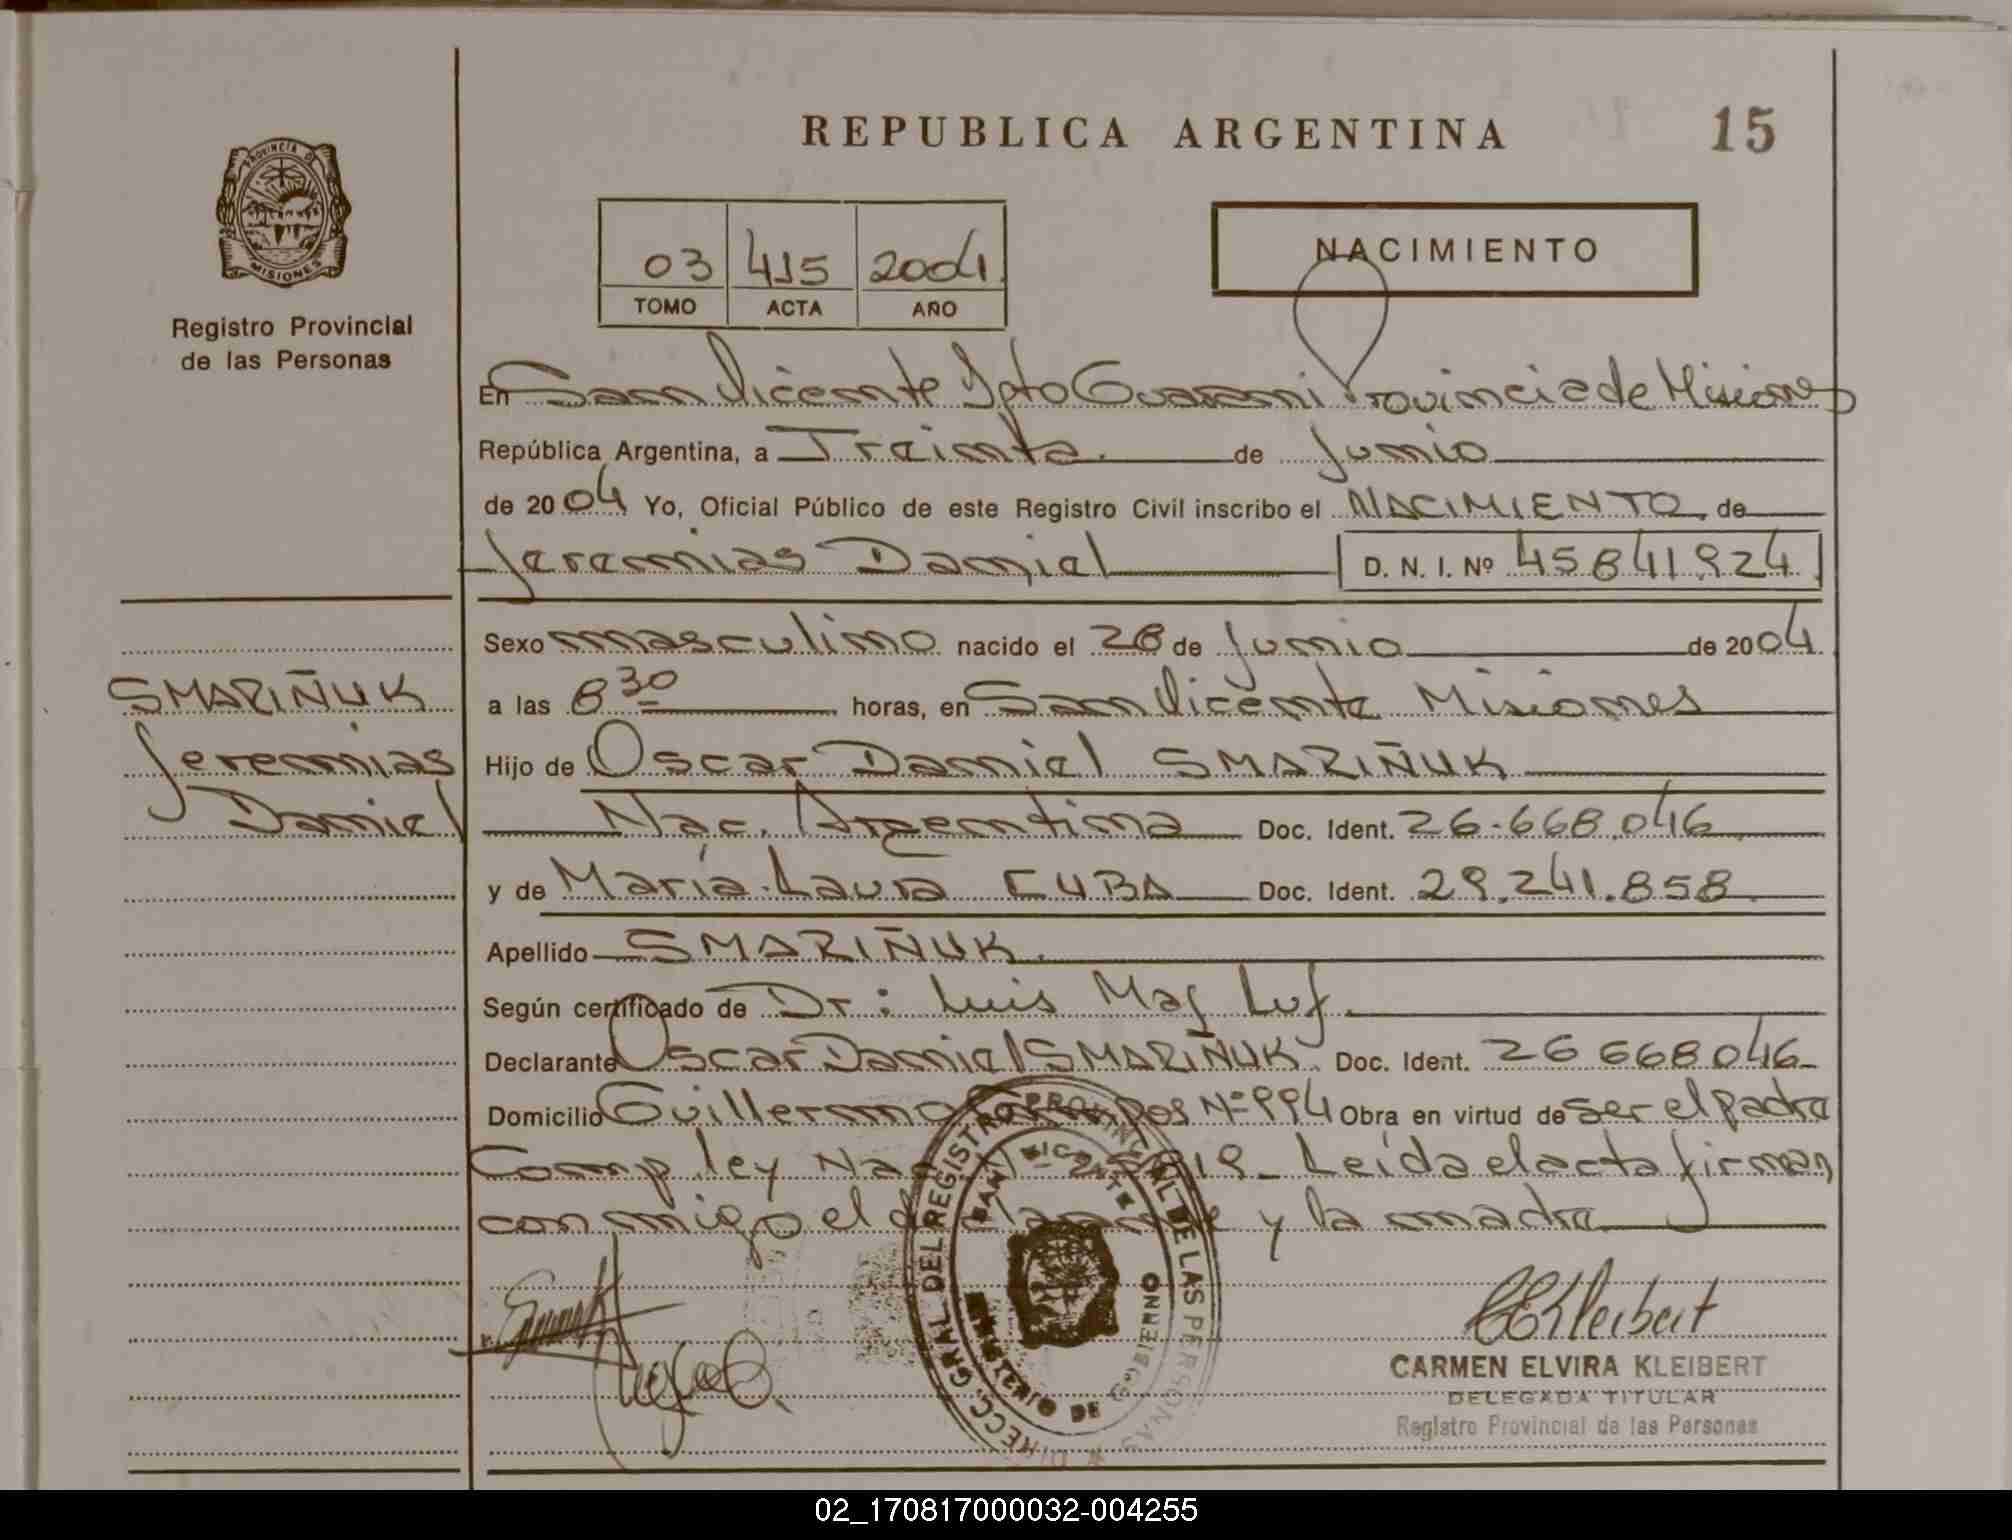 REPUBLICA ARGENTINA
15
PROVINCIA DE
MISIONES
Registro Provincial
de las Personas
03 415 2004
TOMO ACTA AÑO
NACIMIENTO
En San Vicente Dpto Guarani Provincia de Misiones
República Argentina, a Treinta de Junio
de 2004 Yo, Oficial Público de este Registro Civil inscribo el NACIMIENTO, de
Jeremias Daniel D. N. I. Nº 45841.924
Sexo masculino nacido el 28 de Junio de 2004
SMARIÑUK
Jeremias
Daniel
a las 8 30 horas, en San Vicente Misiones
Hijo de Oscar Daniel SMARIÑUK
Nac. Argentina Doc. Ident. 26.668.046
y de María Laura CUBA Doc. Ident. 29.241.858
Apellido SMARIÑUK
Según certificado de Dr: Luis
Declarante Oscar Daniel SMARIÑUK Doc. Ident. 26 668 046
Domicilio Guillermo Nº 994 Obra en virtud de ser el padre
Comp. ley Leída el acta firman
conmigo el y la madre
DIRECC. GRAL DEL REGISTRO PROVINCIAL DE LAS PERSONAS
SAN VICENTE
MINISTERIO DE GOBIERNO
CEKleibert
CARMEN ELVIRA KLEIBERT
DELEGADA TITULAR
Registro Provincial de las Personas
02_170817000032-004255